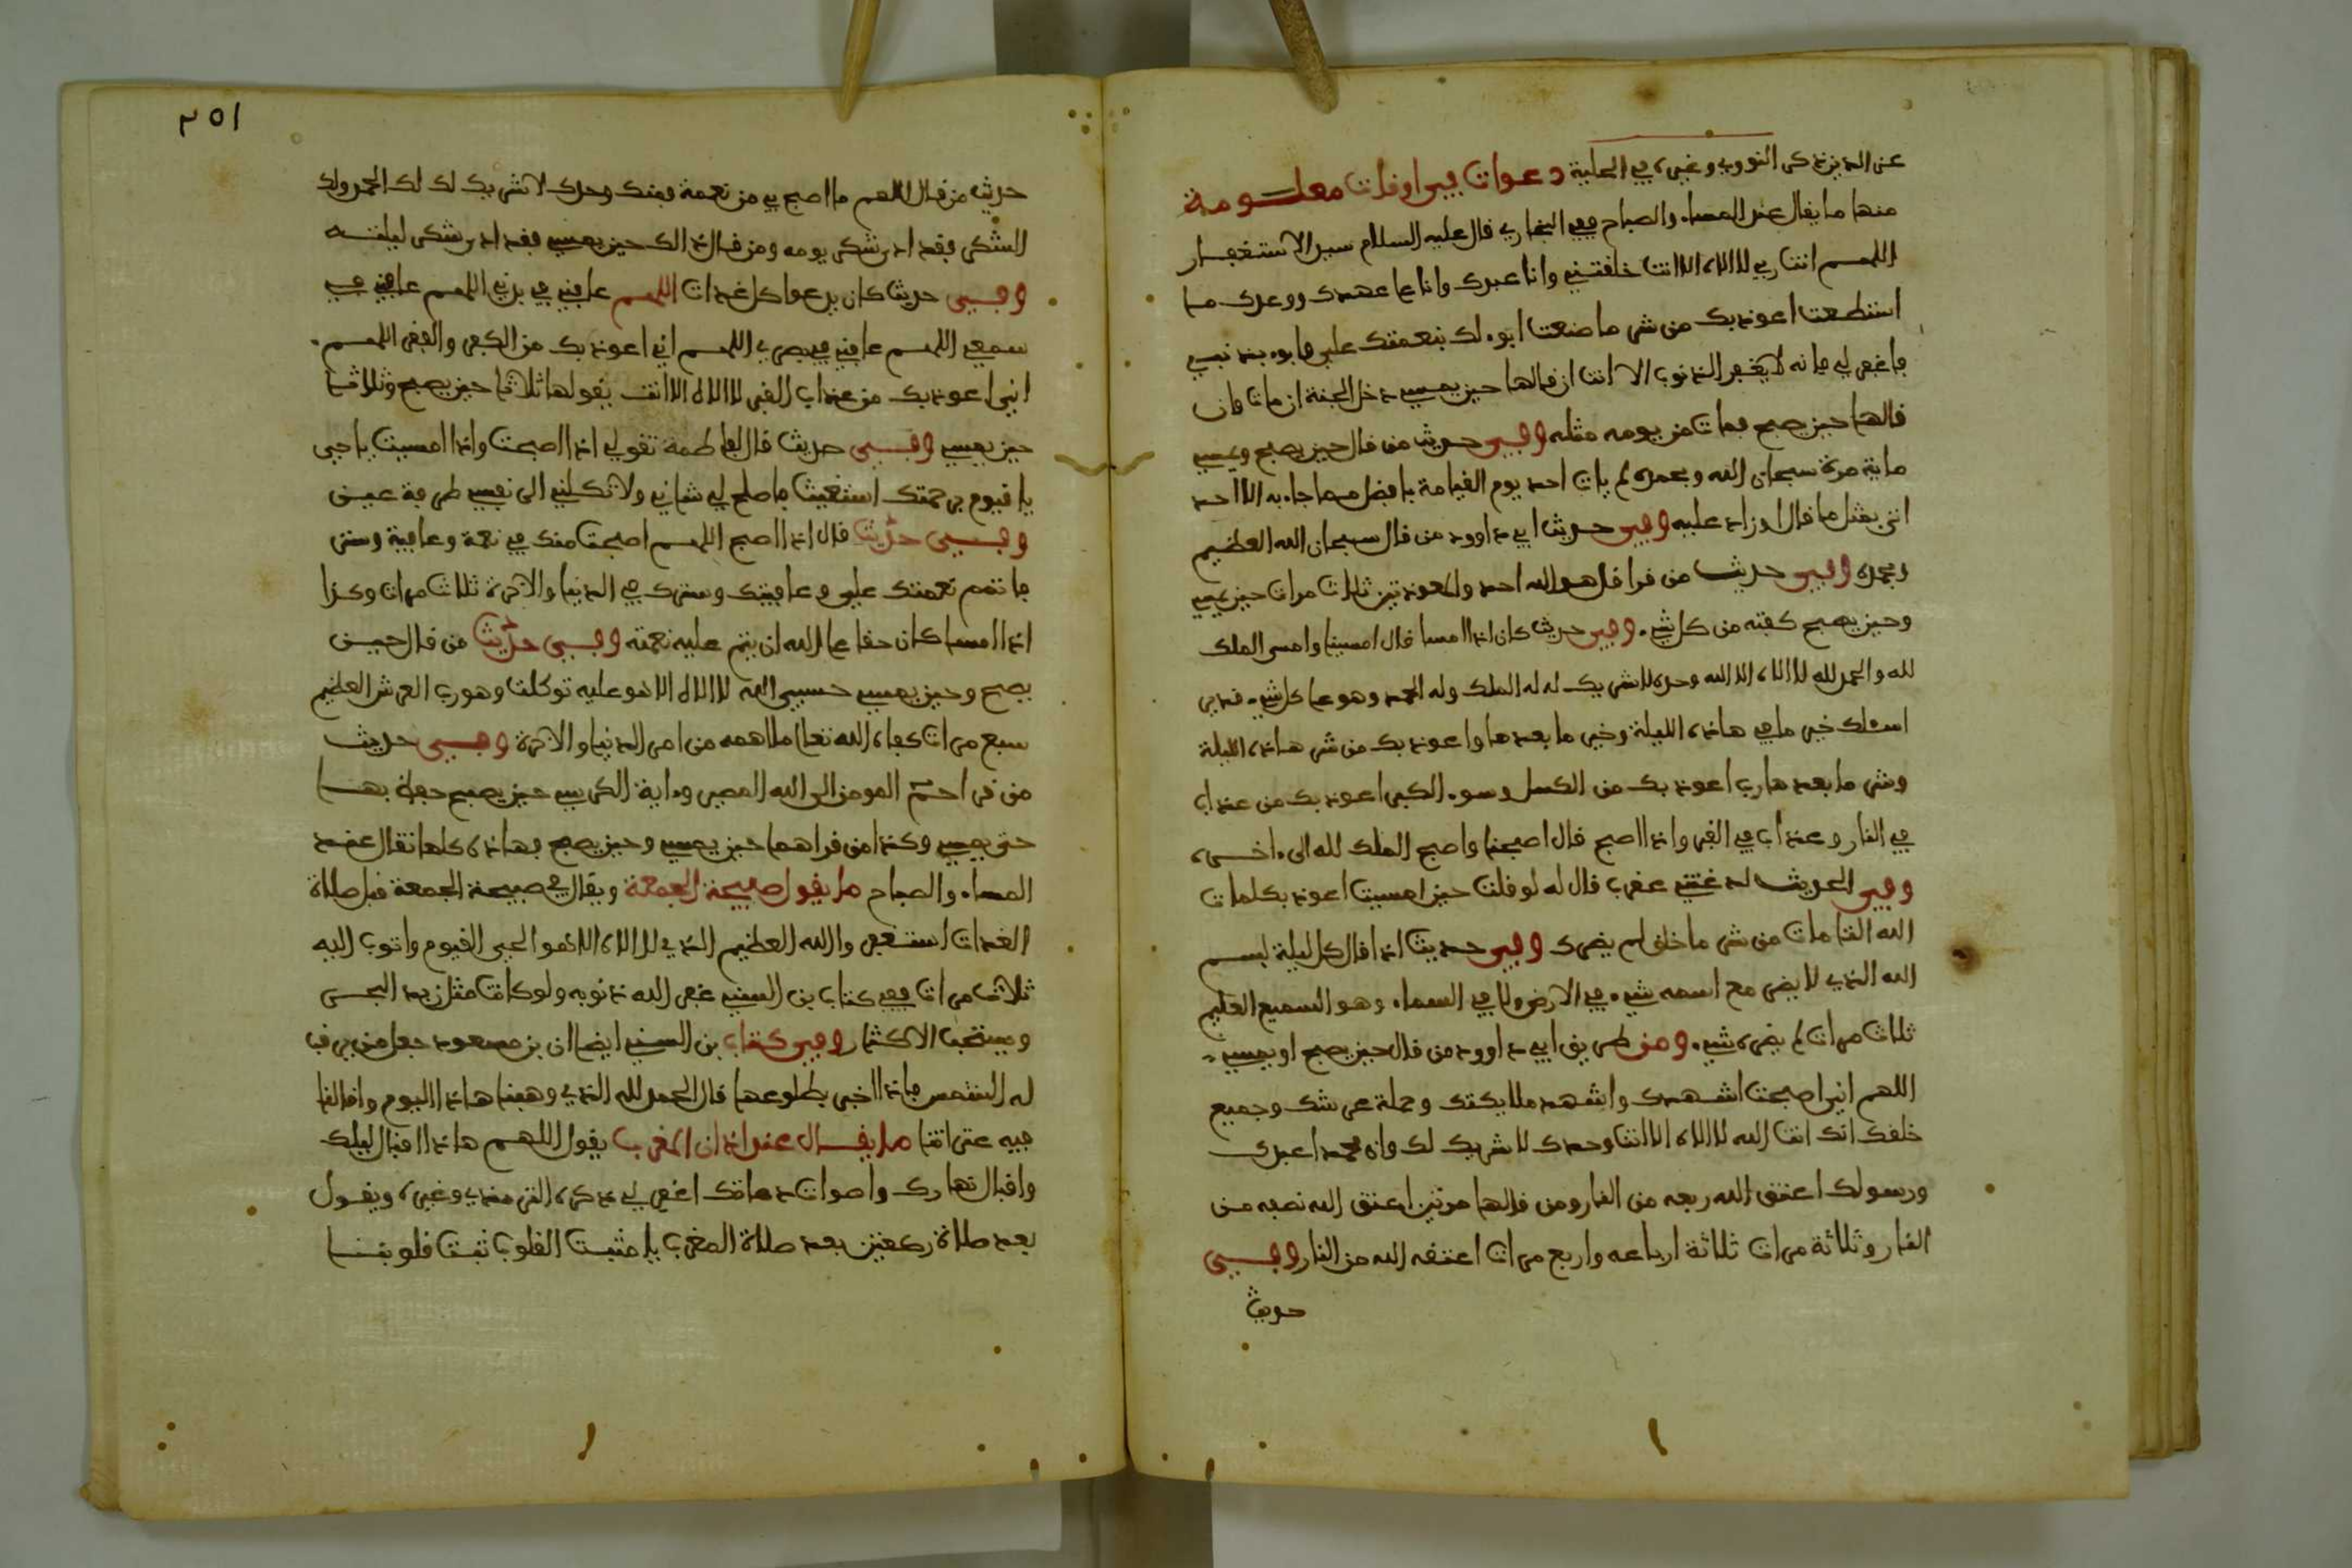 عز الدين ذكر النووي وغيره في الحلية دعوات في اوفات معلومة
منها ما يقال عند المساء والصباح ففي البخاري قال عليه السلام سيد الاستغفار
اللهم انت ربي لا الاه الا انت خلقتني وانا عبدك وانا على عهدك ووعدك ما
استطعت اعوذ بك من شر ما صنعت ابوء لك بنعمتك علي وابوء بذنبي
فاغفر لي فانه لا يغفر الذنوب الا انت ان قالها حين يمسي دخل الجنة ان مات وان
قالها حين يصبح فمات من يومه مثله وفي حديث من قال حين يصبح ويمسي
ماية مرة سبحان الله وبحمده لم يات احد يوم القيامة بافضل مما جاء به الا احد
اتى بمثل ما قال او زاد عليه وفي حديث ابي داوود من قال سبحان الله العظيم
وبحمده وفي حديث من قرا قل هو الله احد والمعوذتين ثلاث مرات حين يمسي
وحين يصبح كفته من كل شيء وفي حديث كان اذا امسا قال امسينا وامسى الملك
لله والحمد لله لا الاه الا الله وحده لا شريك له له الملك وله الحمد وهو على كل شيء قدير
اسئلك خير ما في هاذه الليلة وخير ما بعدها واعوذ بك من شر هاذه الليلة
وشر ما بعدها رب اعوذ بك من الكسل وسوء الكبر اعوذ بك من عذاب
في النار وعذاب في القبر واذا اصبح قال اصبحنا واصبح الملك لله الى ءاخره
وفي الحديث لدغتني عقرب قال له لو قلت حين امسيت اعوذ بكلمات
الله التامات من شر ما خلق لم يضرك وفي حديث اذا قال كل ليلة بسم
الله الذي لا يضر مع اسمه شيء في الارض ولا في السماء وهو السميع العليم
ثلاث مرات لم يضره شيء ومن طريق ابي داوود من قال حين يصبح او يمسي
اللهم اني اصبحت اشهدك واشهد ملايكتك وحملة عرشك وجميع
خلقك انك انت الله لا الاه الا انت وحدك لا شريك لك وان محمد عبدك
ورسولك اعتق الله ربعه من النار ومن قالها مرتين اعتق الله نصفه من
النار وثلاثة مرات ثلاثة ارباعه واربع مرات اعتقه الله من النار وفي
حديث
٢٥١
حديث من قال اللهم ما اصبح بي من نعمة فمنك وحدك لا شريك لك لك الحمد ولك
الشكر فقد ادى شكر يومه ومن قال ذالك حين يمسي فقد ادى شكر ليلته
وفي حديث كان يدعوا كل غدات اللهم عافني في بدني اللهم عافني في
سمعي اللهم عافني في بصري اللهم اني اعوذ بك من الكفر والفقر اللهم
اني اعوذ بك من عذاب القبر لا الاه الا انت يقولها ثلاثا حين يصبح وثلاثا
حين يمسي وفي حديث قال لفاطمة تقولي اذا اصبحت واذا امسيت يا حي
يا قيوم برحمتك استغيث فاصلح لي شاني ولا تكلني الى نفسي طرفة عين
وفي حديث قال اذا اصبح اللهم اصبحت منك في نعمة وعافية وستر
فاتمم نعمتك علي وعافيتك وسترك في الدنيا والاخرة ثلاث مرات وكذا
اذا امسا كان حقا على الله ان يتم عليه نعمته وفي حديث من قال حين
يصبح وحين يمسي حسبي الله لا الاه الا هو عليه توكلت وهو رب العرش العظيم
سبع مرات كفاه الله تعالى ما اهمه من امر الدنيا والاخرة وفي حديث
من قرا حم المومن الى اليه المصير وءاية الكرسي حين يصبح حفظ بهما
حتى يمسي وكذا من قراهما حين يمسي وحين يصبح فهاذه كلها تقال عند
المساء والصباح ما يقول صبيحة الجمعة ويقال في صبيحة الجمعة قبل صلاة
الغدات استغفر الله العظيم الذي لا الاه الا هو الحي القيوم واتوب اليه
ثلاث مرات ففي كتاب بن السني غفر الله ذنوبه ولو كانت مثل زبد البحر
ويستحب الاكثار وفي كتاب بن السني ايضا ان بن مسعود جعل من يرقب
له الشمس فاذا اخبر بطلوعها قال الحمد لله الذي وهبنا هاذا اليوم واقالنا
فيه عثراتنا ما يقال عند اذان المغرب يقول اللهم هاذا اقبال ليلك
واقبال نهارك واصوات دعاتك اغفر لي ذكره الترمذي وغيره ويقول
بعد صلاة ركعتين بعد صلاة المغرب يا مثبت القلوب ثبت قلوبنا